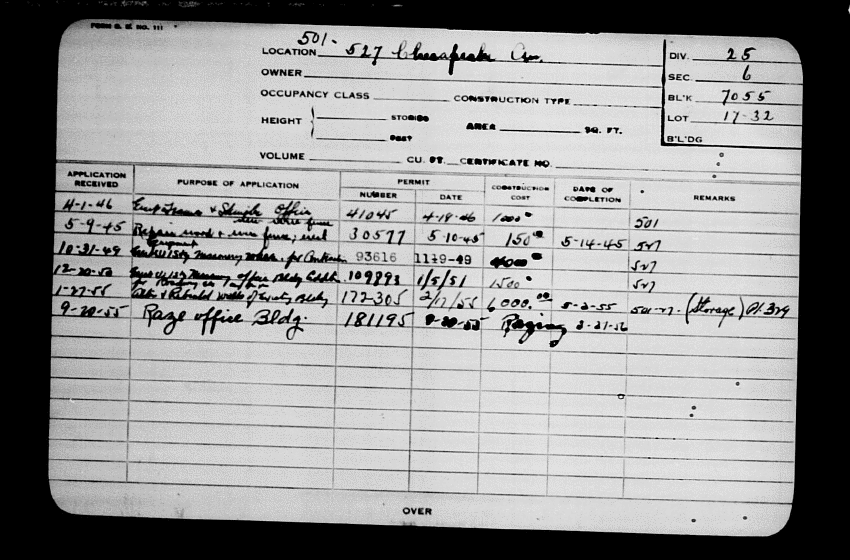 FORM G. E. NO. 111
501-
LOCATION 527 Chesapeake Av. DIV. 25
OWNER SEC. 6
OCCUPANCY CLASS CONSTRUCTION TYPE BL'K 7055
HEIGHT STORIES AREA SQ. FT. LOT 17-32
FEET B'L'DG
VOLUME CU. FT. CERTIFICATE NO.
APPLICATION RECEIVED PURPOSE OF APPLICATION PERMIT NUMBER DATE CONSTRUCTION COST DATE OF COMPLETION REMARKS
4-1-46 Erect Frame + Shingle Office 41045 4-18-46 1000 501
5-9-45 Repair wood + wire fence; erect new wire fence 30577 5-10-45 150 5-14-45 527
10-31-49 Erect 1 Sty Masonry 93616 11-9-49 4000 527
12-20-50 Erect 1 Sty Masonry office Bldg 109893 1/5/51 1500 527
1-27-55 Alter + Rebuild walls of Existing Bldg 172305 2/17/55 6000.00 5-2-55 501-27- (Storage) Pl. 329
9-20-55 Raze office Bldg. 181195 9-20-55 Razing 3-21-56
OVER